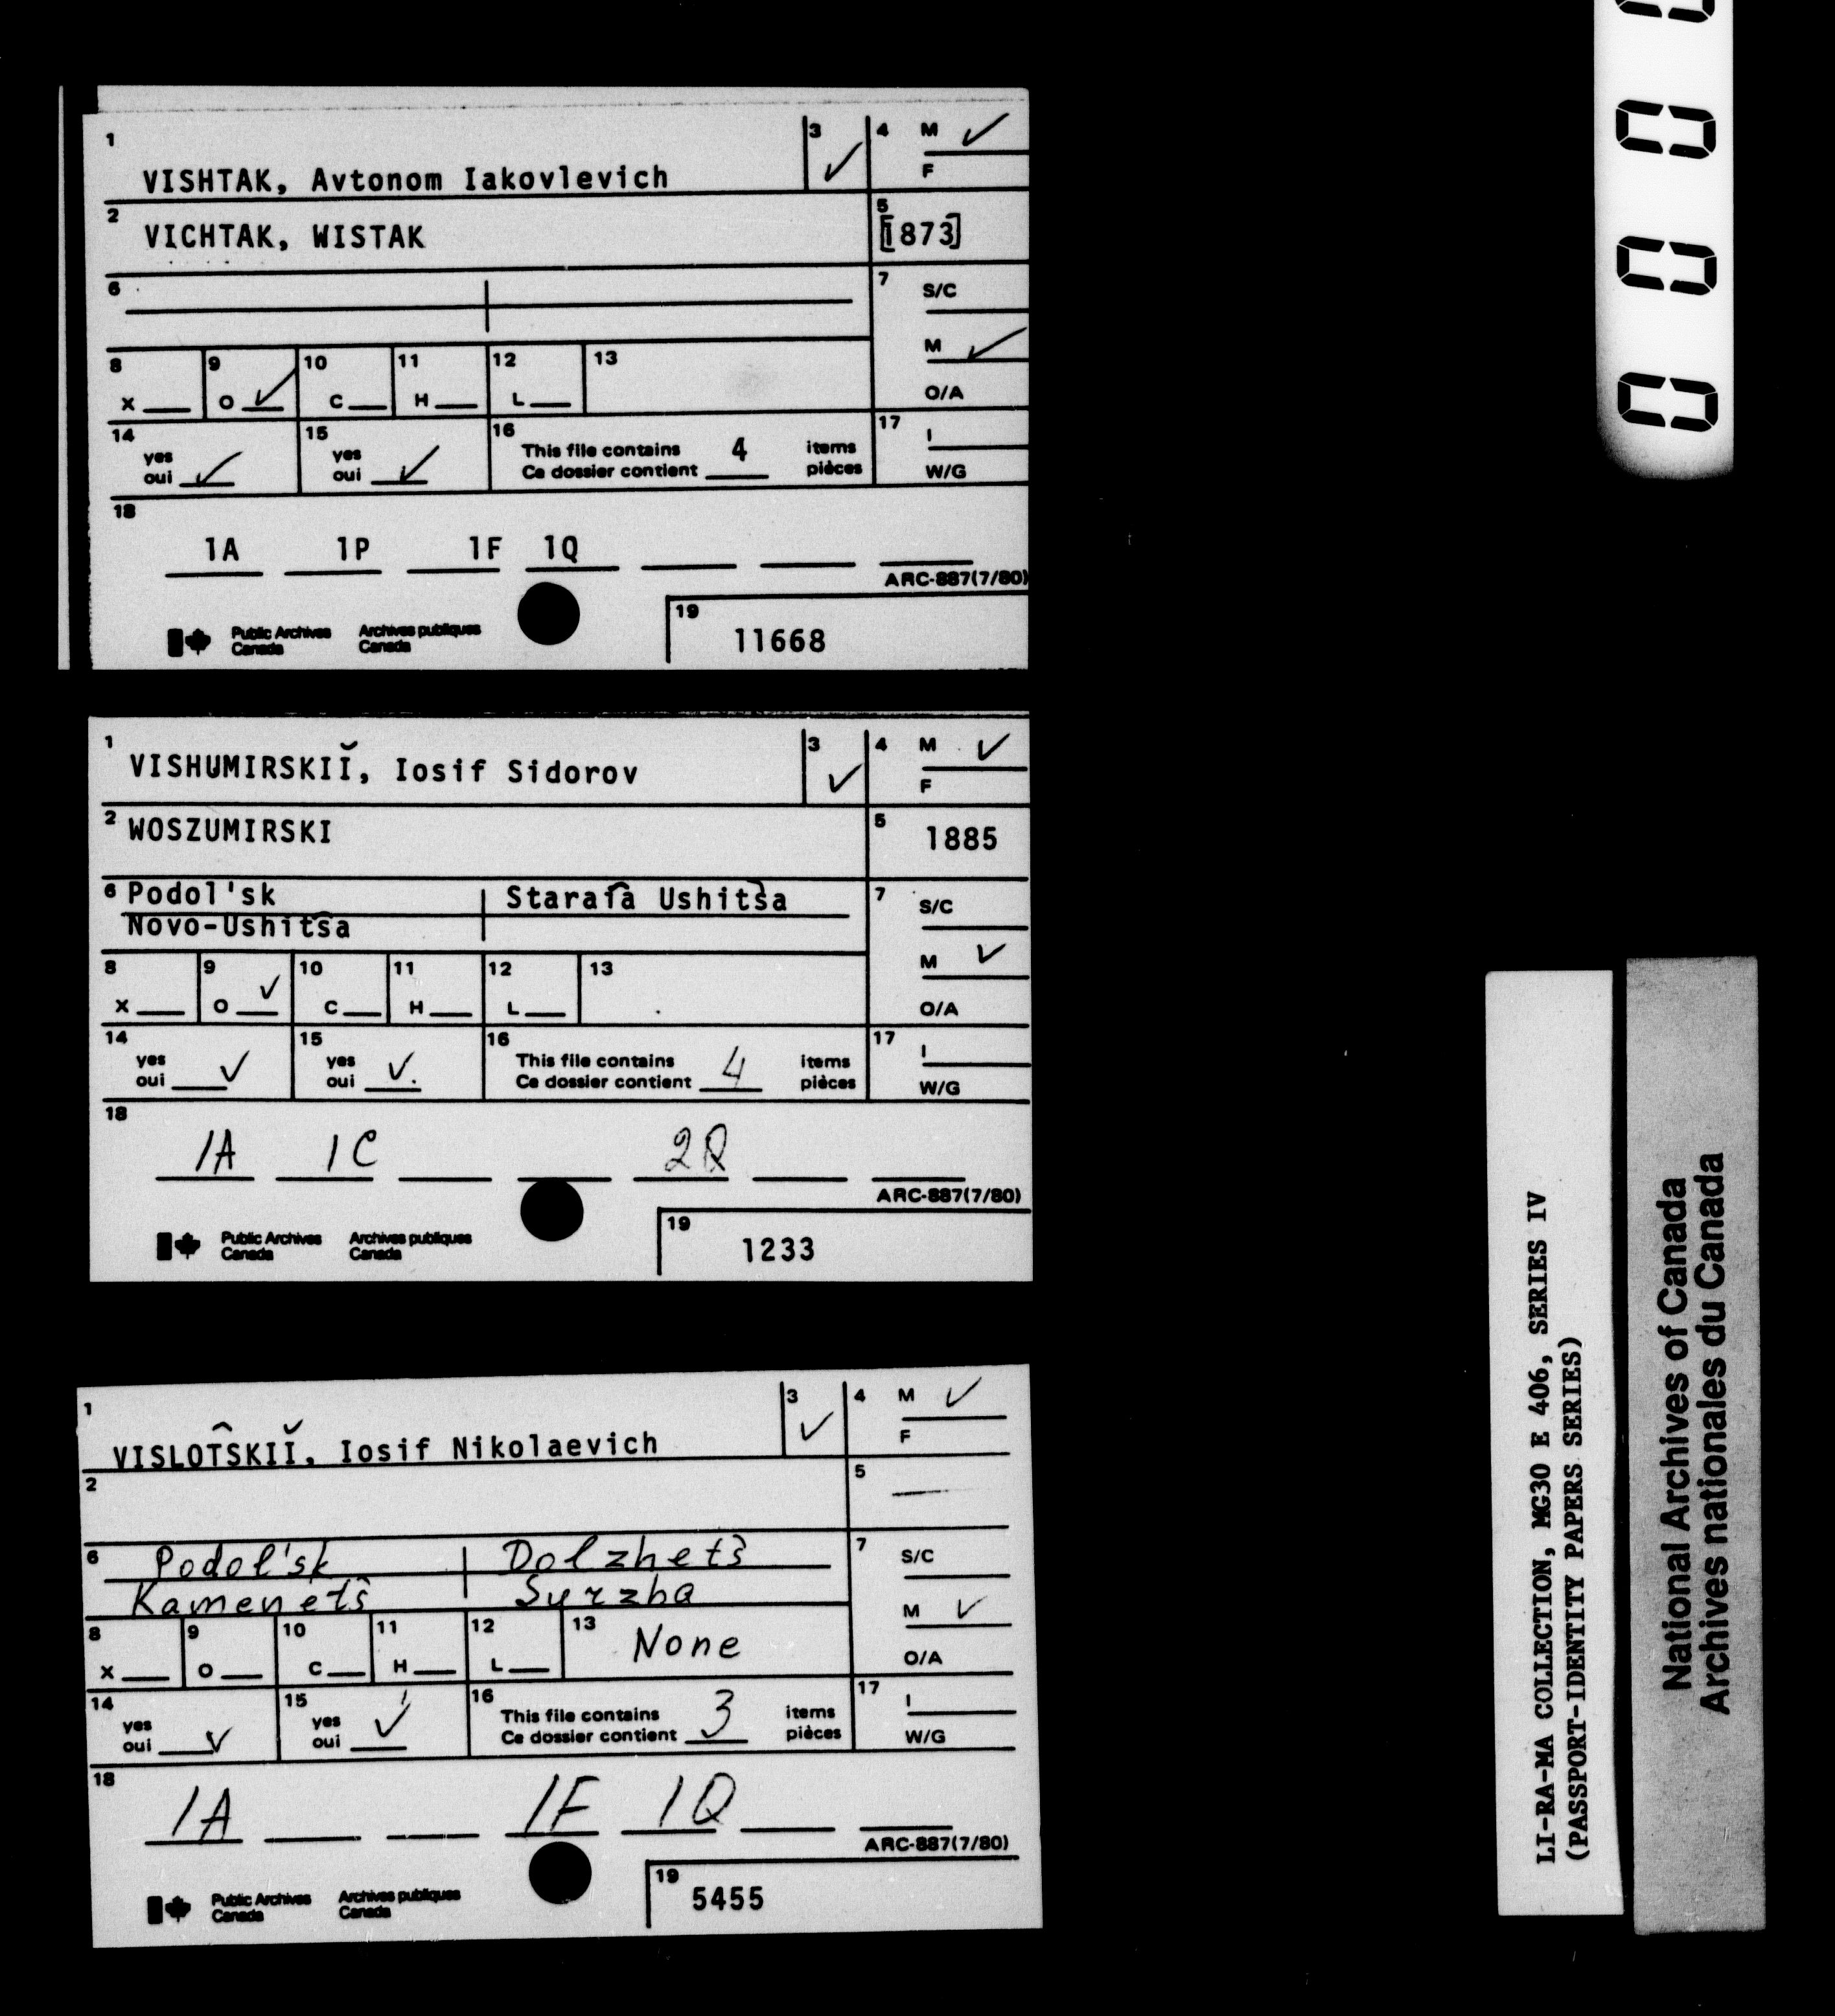 1 VISHTAK, Avtonom Iakovlevich 3 ✓ 4 M ✓
F
2 VICHTAK, WISTAK 5 [1873]
6 7 S/C
M ✓
O/A
8 X 9 O ✓ 10 C 11 H 12 L 13
14 yes oui ✓ 15 yes oui ✓ 16 This file contains 4 items 17 I
Ce dossier contient pièces W/G
18
1A 1P 1F 1Q
ARC-887(7/80)
Public Archives Canada Archives publiques Canada 19 11668
1 VISHUMIRSKIĬ, Iosif Sidorov 3 ✓ 4 M ✓
F
2 WOSZUMIRSKI 5 1885
6 Podol'sk Staraîa Ushit͡sa 7 S/C
Novo-Ushit͡sa
M ✓
O/A
8 X 9 O ✓ 10 C 11 H 12 L 13
14 yes oui ✓ 15 yes oui ✓. 16 This file contains 4 items 17 I
Ce dossier contient pièces W/G
18
1A 1C 2Q
ARC-887(7/80)
Public Archives Canada Archives publiques Canada 19 1233
1 VISLOT͡SKIĬ, Iosif Nikolaevich 3 ✓ 4 M ✓
F
2 5 —
6 Podol'sk Dolzhet͡s 7 S/C
Kamenet͡s
M ✓
O/A
8 X 9 O 10 C 11 H 12 L 13 None
14 yes oui ✓ 15 yes oui ✓ 16 This file contains 3 items 17 I
Ce dossier contient pièces W/G
18
1A 1F 1Q
ARC-887(7/80)
Public Archives Canada Archives publiques Canada 19 5455
LI-RA-MA COLLECTION, MG30 E 406, SERIES IV
(PASSPORT-IDENTITY PAPERS SERIES)
National Archives of Canada
Archives nationales du Canada
0 0 0